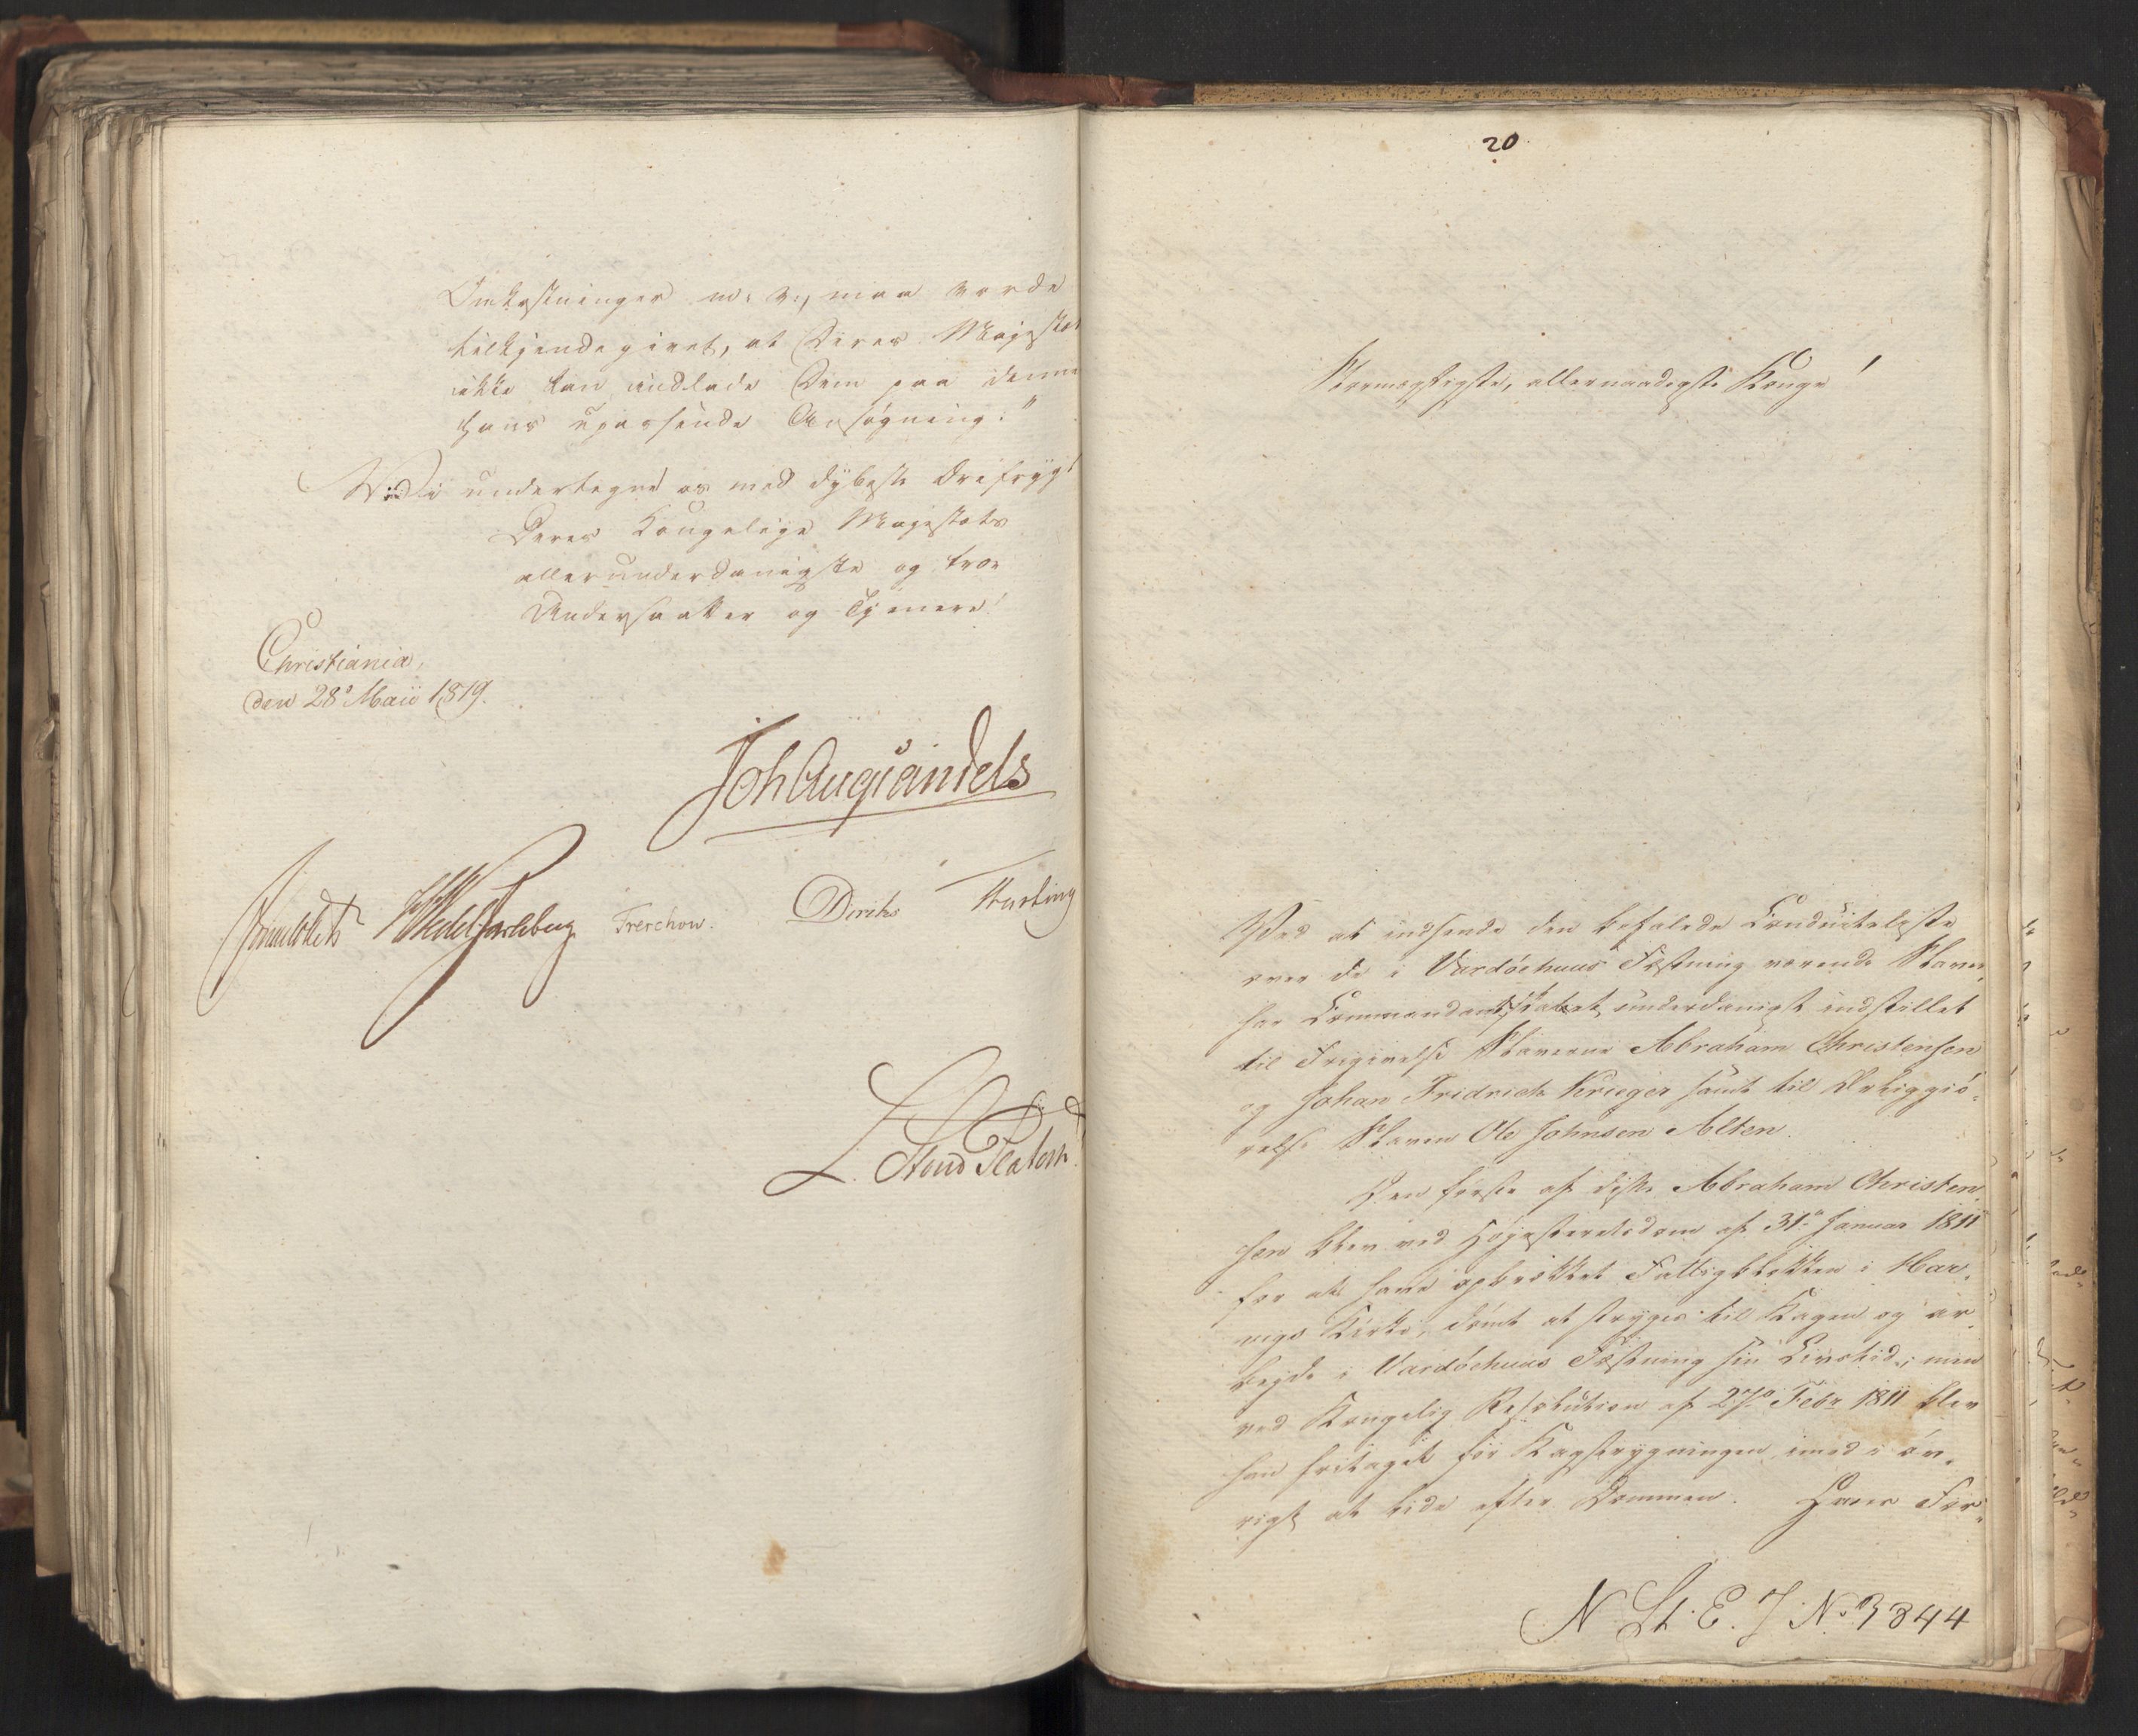 Omkostninger m: v:, maa vorde
tilkjendegivet, at Deres Majestæt
ikke kan indlade Dem paa denne
hans upassende Ansøgning."
Vi undertegne os med dybeste Ærefrygt
Deres Kongelige Majestæts
allerunderdanigste og troe
Undersaatter og Tjenere!
Christiania,
den 28de Maii 1819.
Joh Aug Sandels
Sommerhielm HWedelJarlsberg Treschow. Diriks Fasting
L. Stoud Platou
20.
Stormægtigste, allernaadigste Konge!
Ved at indsende den befalede Conduiteliste
over de i Vardöehuus Fæstning værende Slaver,
har Commandantskabet underdanigst indstillet
til Frigivelse Slaverne Abraham Christensen
og Johan Fridrich Krieger samt til Ærliggiö-
relse Slaven Ole Johnsen Alten.
Den første af disse Abraham Christen-
sen blev ved Høyesteretsdom af 31te Januar 1811
for at have opbrækket Fattigblokken i Har-
vigs Kirke, dømt at stryges til Kagen og ar-
bejde i Vardöehuus Fæstning sin Livstid; men
ved Kongelig Resolution af 27de Febr 1811 blev
han fritaget for Kagstrygningen, imod i øv-
rigt at lide efter Dommen. Hans For-
N St. E. J. No 3844